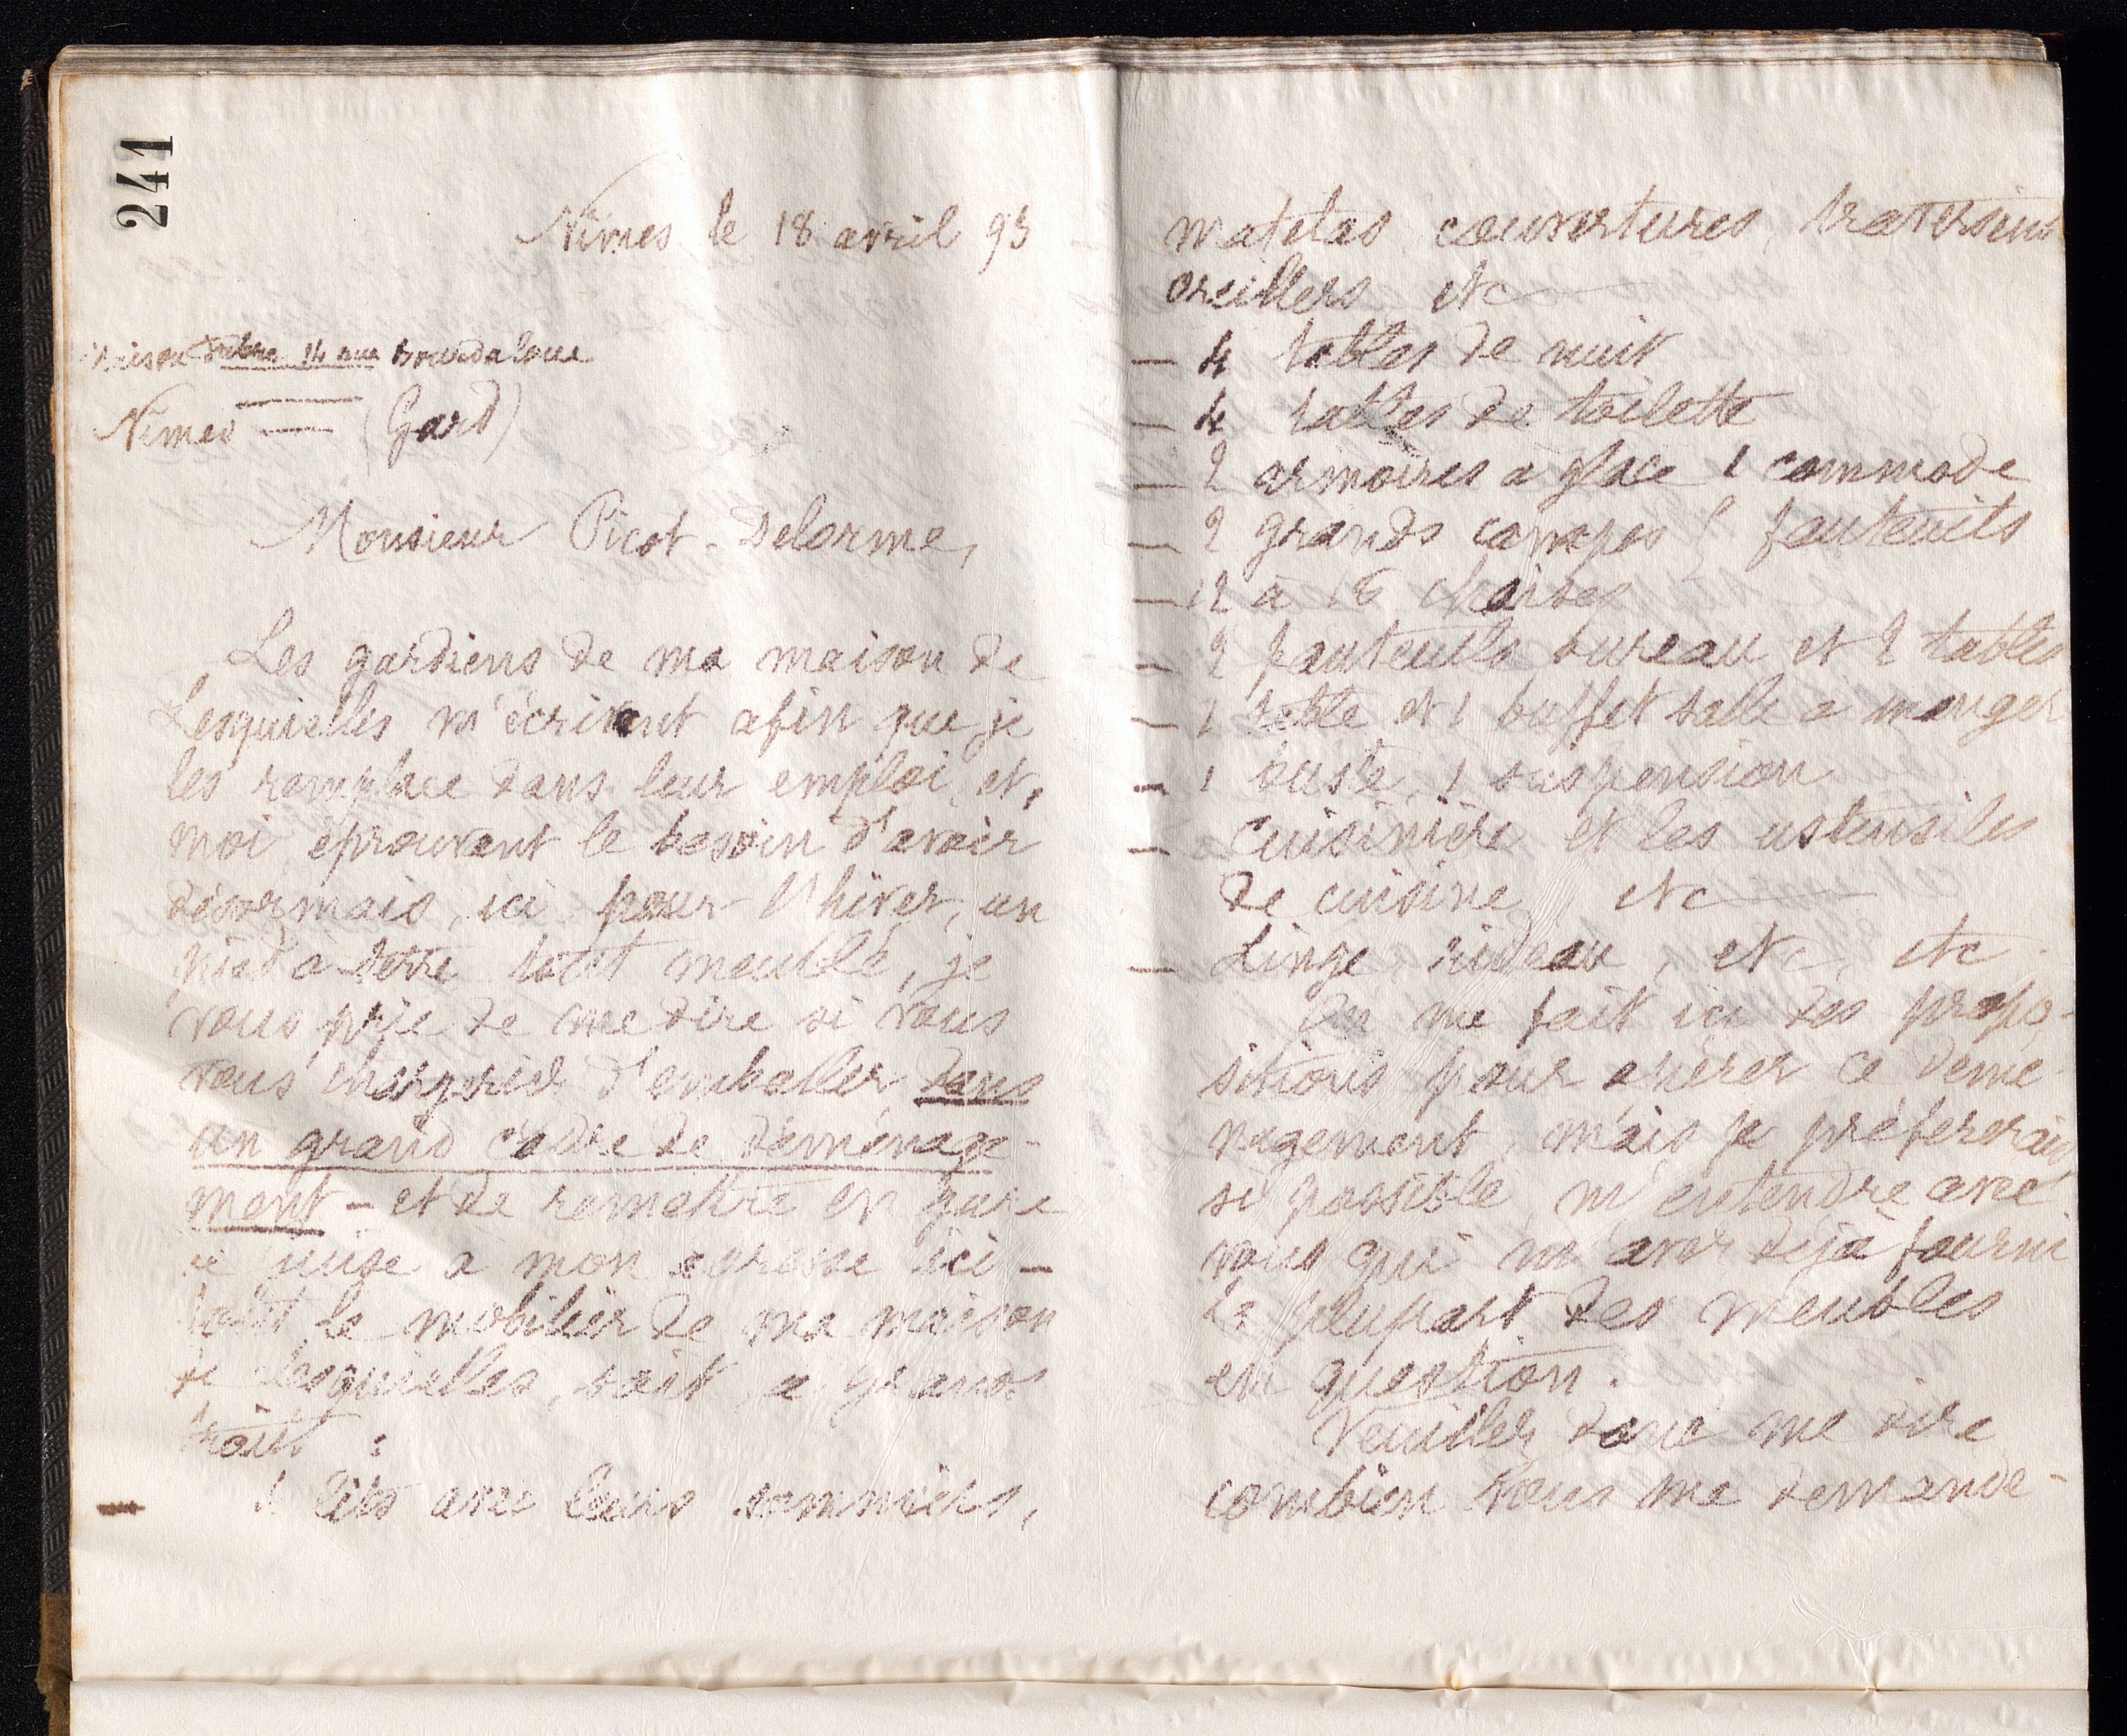 241
Nîmes le 18 avril 93
14 rue Bourdaloue
Nîmes — (Gard)
Monsieur Picot-Delorme,
Les gardiens de ma maison de
Lesquielles m'écrivent afin que je
les remplace dans leur emploi, et,
moi éprouvant le besoin d'avoir
désormais, ici pour l'hiver, un
pied à terre tout meublé, je
vous prie de me dire si vous
vous chargeriez d'emballer dans
un grand cadre de déménage-
ment — et de remettre en gare
de Guise à mon adresse ici —
tout le mobilier de ma maison
de Lesquielles, soit, à grands
traits :
— lits avec leurs sommiers,
matelas couvertures, traversins
oreillers etc
— 4 tables de nuit
— 4 tables de toilette
— 2 armoires à glace 1 commode
— 2 grands canapés fauteuils
— 12 à 18 chaises
— 2 fauteuils bureau et 2 tables
— 1 table et 1 buffet salle à manger
— 1 buste, 1 suspension
— cuisinière et les ustensiles
de cuisine etc
— Linge rideau, etc, etc.
On me fait ici des propo-
sitions pour opérer ce démé-
nagement, mais je préférerais
si possible m'entendre avec
vous qui m'avez déjà fourni
la plupart des meubles
en question.
Veuillez donc me dire
combien vous me demande-